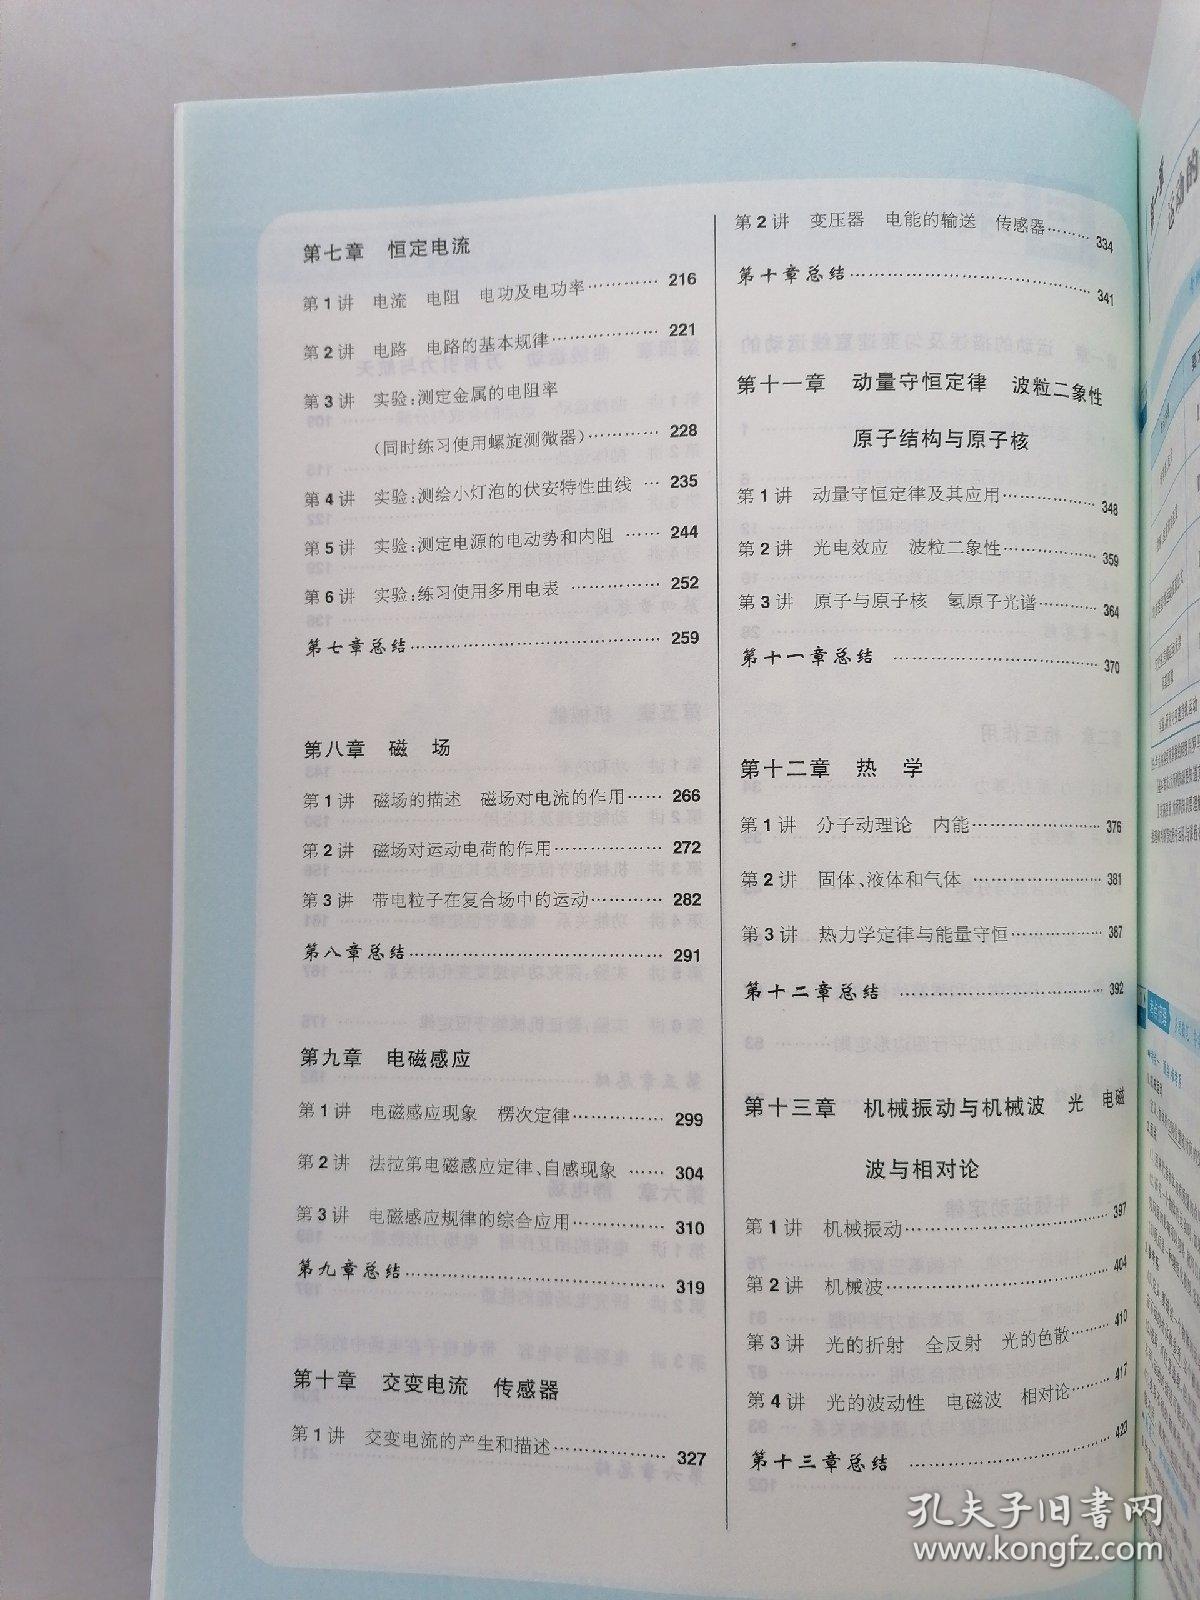 第七章 恒定电流
第1讲 电流 电阻 电功及电功率………… 216
第2讲 电路 电路的基本规律……………… 221
第3讲 实验:测定金属的电阻率
(同时练习使用螺旋测微器)………… 228
第4讲 实验:测绘小灯泡的伏安特性曲线 … 235
第5讲 实验:测定电源的电动势和内阻 …… 244
第6讲 实验:练习使用多用电表 …………… 252
第七章总结…………………………………… 259
第八章 磁 场
第1讲 磁场的描述 磁场对电流的作用…… 266
第2讲 磁场对运动电荷的作用……………… 272
第3讲 带电粒子在复合场中的运动………… 282
第八章总结…………………………………… 291
第九章 电磁感应
第1讲 电磁感应现象 楞次定律…………… 299
第2讲 法拉第电磁感应定律、自感现象 …… 304
第3讲 电磁感应规律的综合应用…………… 310
第九章总结…………………………………… 319
第十章 交变电流 传感器
第1讲 交变电流的产生和描述……………… 327
第2讲 变压器 电能的输送 传感器……… 334
第十章总结…………………………………… 341
第十一章 动量守恒定律 波粒二象性
原子结构与原子核
第1讲 动量守恒定律及其应用……………… 348
第2讲 光电效应 波粒二象性……………… 359
第3讲 原子与原子核 氢原子光谱………… 364
第十一章总结 ……………………………… 370
第十二章 热 学
第1讲 分子动理论 内能…………………… 376
第2讲 固体、液体和气体 ………………… 381
第3讲 热力学定律与能量守恒……………… 387
第十二章总结 ……………………………… 392
第十三章 机械振动与机械波 光 电磁
波与相对论
第1讲 机械振动……………………………… 397
第2讲 机械波………………………………… 404
第3讲 光的折射 全反射 光的色散……… 410
第4讲 光的波动性 电磁波 相对论……… 417
第十三章总结 ……………………………… 423
孔夫子旧书网
www.kongfz.com